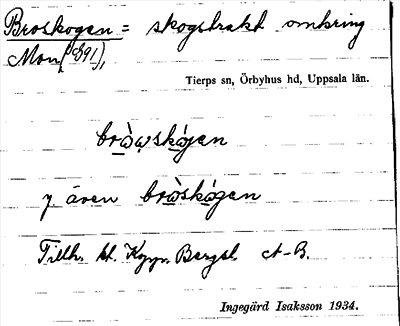 Broskogen = skogstrakt omkring
Mon (891),
Tierps sn, Örbyhus hd, Uppsala län.
bròwskógen
y även bròskógen
Tillh. kt. Kyrr. Bergsl. A-B.
Ingegärd Isaksson 1934.